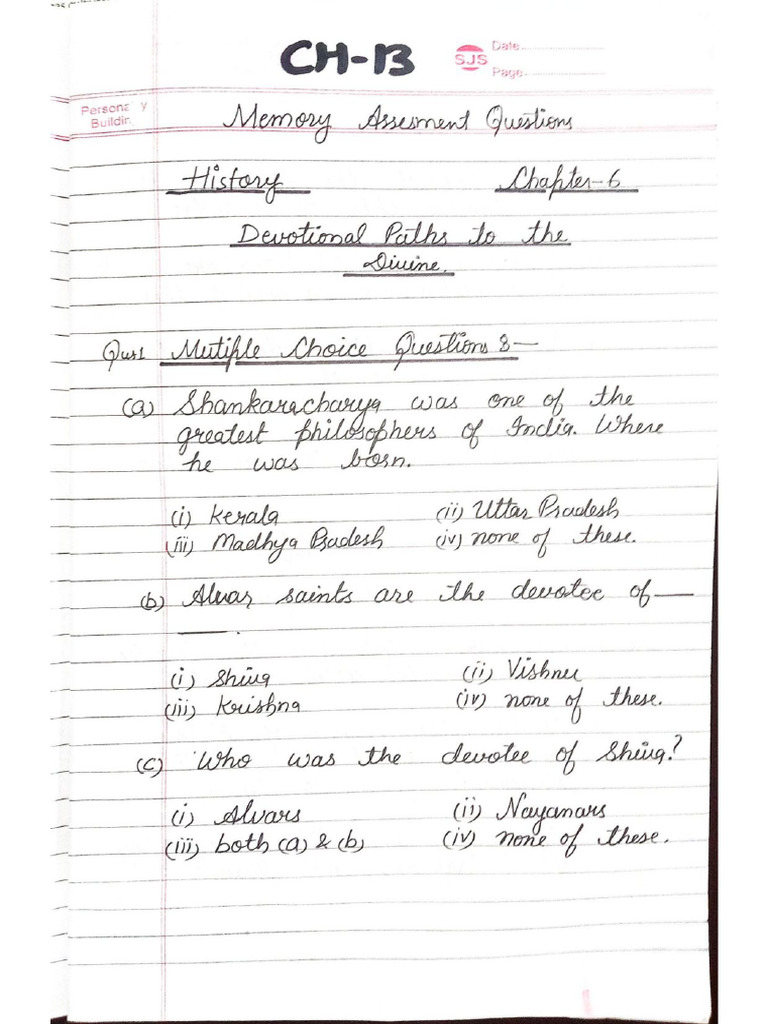 CH-13
SJS Date
Page
Memory Assesment Questions
History Chapter-6
Devotional Paths to the
Divine.
Ques1 Mutiple Choice Questions :-
(a) Shankaracharya was one of the
greatest philosophers of India. Where
he was born.
(i) Kerala (ii) Uttar Pradesh
(iii) Madhya Pradesh (iv) none of these.
(b) Alvar saints are the devotee of —
—.
(i) Shiva (ii) Vishnu
(iii) Krishna (iv) none of these.
(c) Who was the devotee of Shiva?
(i) Alvars (ii) Nayanars
(iii) both (a) & (b) (iv) none of these.